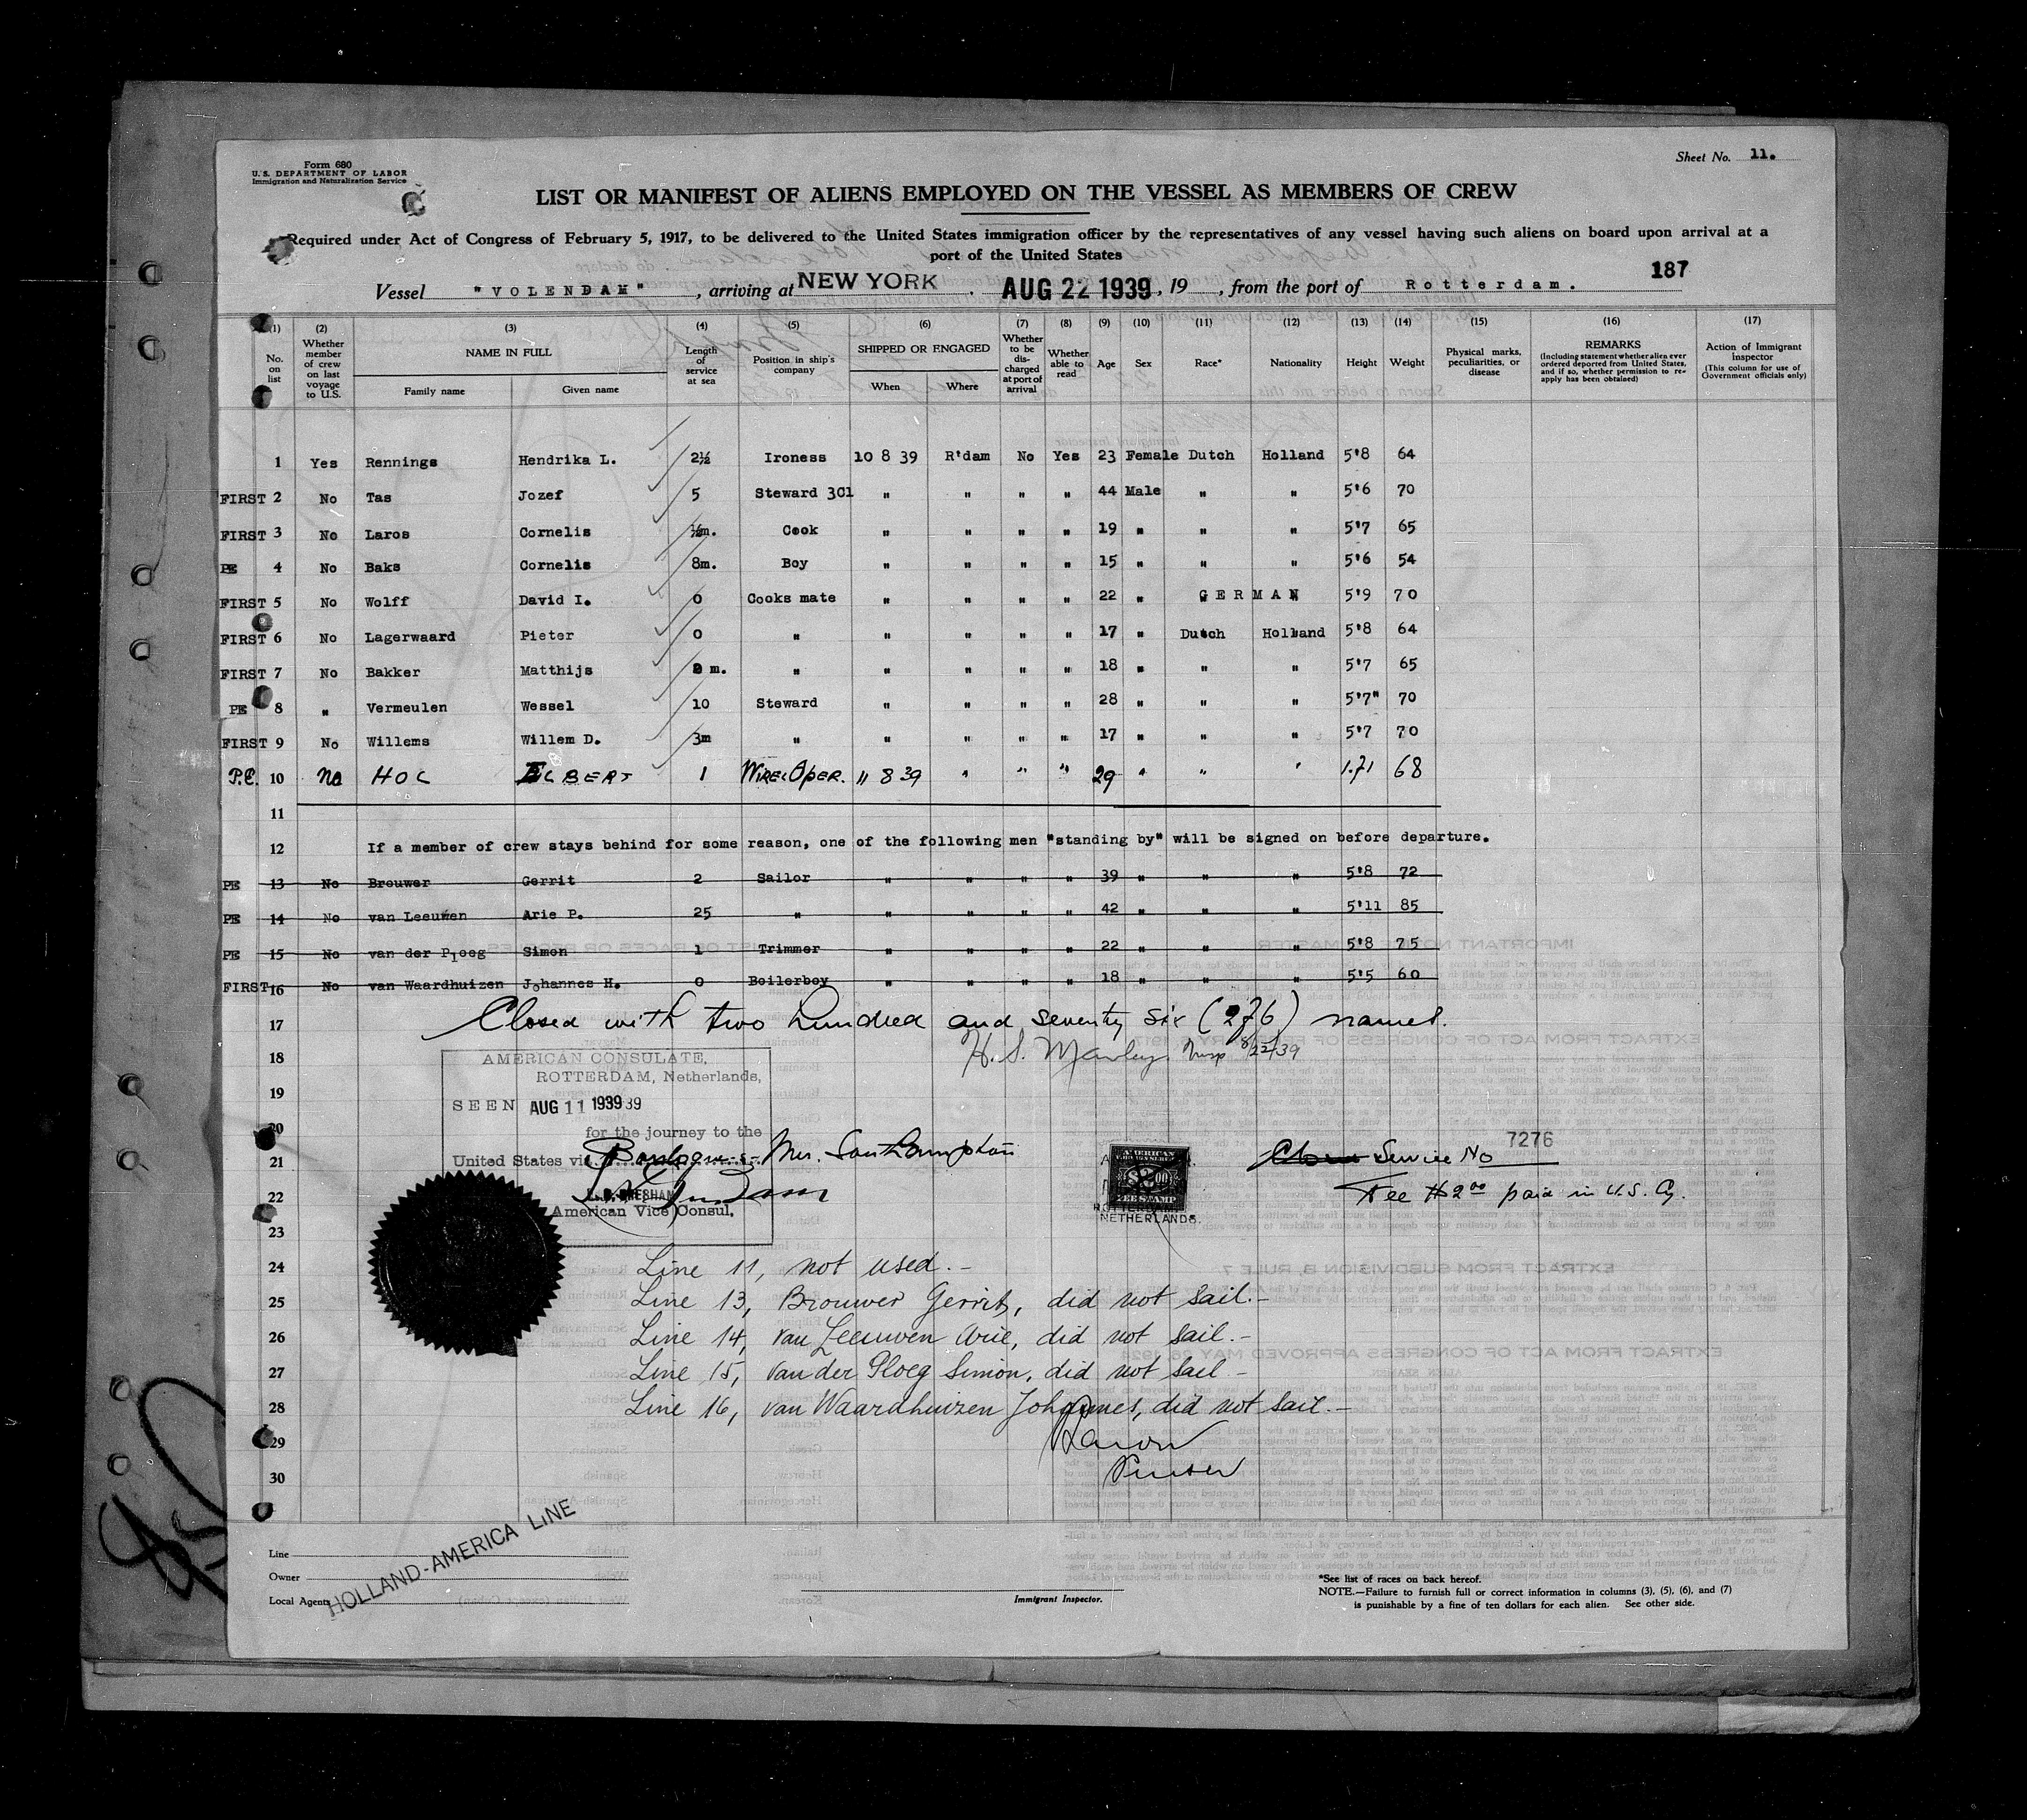 Form 680
U.S. DEPARTMENT OF LABOR
Immigration and Naturalization Service
Sheet No. 11.
LIST OR MANIFEST OF ALIENS EMPLOYED ON THE VESSEL AS MEMBERS OF CREW
Required under Act of Congress of February 5, 1917, to be delivered to the United States immigration officer by the representatives of any vessel having such aliens on board upon arrival at a
port of the United States
187
Vessel "VOLENDAM", arriving at NEW YORK. AUG 22 1939, 19 , from the port of Rotterdam.
(1) (2) (3) (4) (5) (6) (7) (8) (9) (10) (11) (12) (13) (14) (15) (16) (17)
No. on list
Whether member of crew on last voyage to U.S.
NAME IN FULL
Family name
Given name
Length of service at sea
Position in ship's company
SHIPPED OR ENGAGED
When
Where
Whether to be discharged at port of arrival
Whether able to read
Age
Sex
Race*
Nationality
Height
Weight
Physical marks, peculiarities, or disease
REMARKS
(Including statement whether alien ever ordered deported from United States, and if so, whether permission to reapply has been obtained)
Action of Immigrant Inspector
(This column for use of Government officials only)
1 Yes Rennings Hendrika L. 2½ Ironess 10 8 39 R'dam No Yes 23 Female Dutch Holland 5'8 64
FIRST 2 No Tas Jozef 5 Steward 3Cl " " " " 44 Male " " 5'6 70
FIRST 3 No Laros Cornelis ½m. Cook " " " " 19 " " " 5'7 65
PE 4 No Baks Cornelis 8m. Boy " " " " 15 " " " 5'6 54
FIRST 5 No Wolff David I. 0 Cooks mate " " " " 22 " GERMAN 5'9 70
FIRST 6 No Lagerwaard Pieter 0 " " " " " 17 " Dutch Holland 5'8 64
FIRST 7 No Bakker Matthijs m. " " " " " 18 " " " 5'7 65
PE 8 " Vermeulen Wessel 10 Steward " " " " 28 " " " 5'7" 70
FIRST 9 No Willems Willem D. 3m " " " " " 17 " " " 5'7 70
P.E. 10 No HOL ELBERT 1 WIREL OPER. 11 8 39 " " " 29 " " " 1.71 68
11
12 If a member of crew stays behind for some reason, one of the following men "standing by" will be signed on before departure.
PE 13 No Brouwer Gerrit 2 Sailor " " " " 39 " " " 5'8 72
PE 14 No van Leeuwen Arie P. 25 " " " " " 42 " " " 5'11 85
PE 15 No van der Ploeg Simon 1 Trimmer " " " " 22 " " " 5'8 75
FIRST 16 No van Waardhuizen Johannes H. 0 Boilerboy " " " " 18 " " " 5'5 60
17 Closed with two hundred and seventy six (276) names.
18 H. S. Manley Insp 8/22/39
AMERICAN CONSULATE,
ROTTERDAM, Netherlands,
19
SEEN AUG 11 1939 39
20
for the journey to the
21 United States via Boulogne s. Mer. Southampton
Service No 7276
22
American Vice Consul.
Fee $2.00 paid in U.S. Cy.
AMERICAN
$2.00
FEE STAMP
ROTTERDAM,
NETHERLANDS.
23
24 Line 11, not used.-
25 Line 13, Brouwer Gerrit, did not sail.-
26 Line 14, van Leeuwen Arie, did not sail.-
27 Line 15, van der Ploeg Simon, did not sail -
28 Line 16, van Waardhuizen Johannes, did not sail.-
29
30 Purser
Line
Owner
Local Agents
HOLLAND-AMERICA LINE
Immigrant Inspector.
*See list of races on back hereof.
NOTE.—Failure to furnish full or correct information in columns (3), (5), (6), and (7)
is punishable by a fine of ten dollars for each alien. See other side.